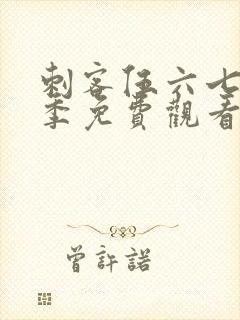 刺客伍六七
季免費觀看
曾許諾